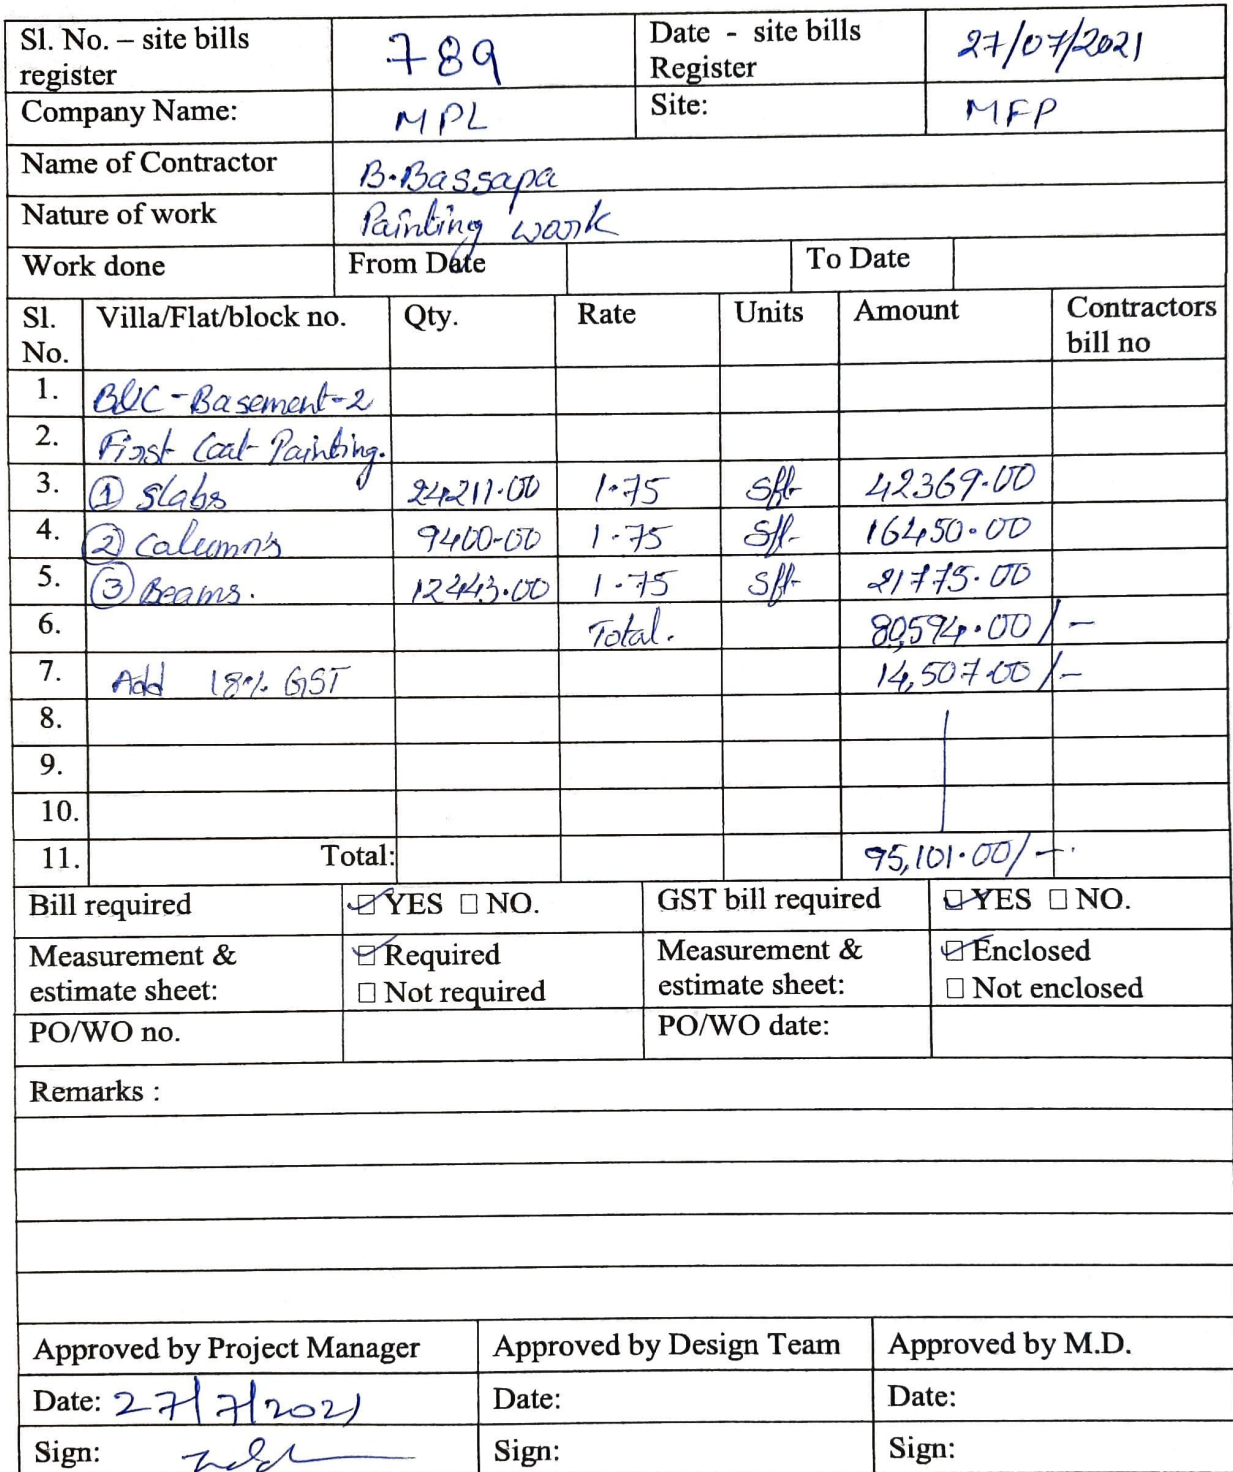 Sl. No. – site bills register 789 Date - site bills Register 27/07/2021
Company Name: MPL Site: MFP
Name of Contractor B.Bassapa
Nature of work Painting work
Work done From Date To Date
Sl. No. Villa/Flat/block no. Qty. Rate Units Amount Contractors bill no
1. BUC-Basement-2
2. First Coat Painting.
3. ① Slabs 24211.00 1.75 Sft 42369.00
4. ② Calumn's 9400.00 1.75 Sft 16450.00
5. ③ Beams. 12443.00 1.75 Sft 21775.00
6. Total. 80,594.00/-
7. Add 18% GST 14,507.00/-
8.
9.
10.
11. Total: 95,101.00/-
Bill required ☑ YES □ NO. GST bill required ☑ YES □ NO.
Measurement & estimate sheet: ☑ Required □ Not required Measurement & estimate sheet: ☑ Enclosed □ Not enclosed
PO/WO no. PO/WO date:
Remarks :
Approved by Project Manager Approved by Design Team Approved by M.D.
Date: 27/7/2021 Date: Date:
Sign: Sign: Sign: